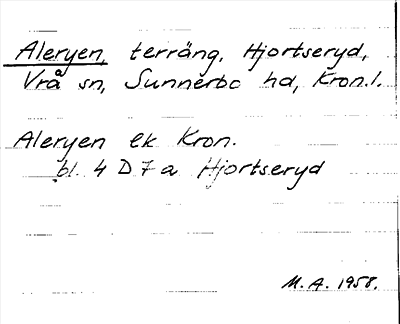 Aleryen, terräng, Hjortseryd,
Vrå sn, Sunnerbo hd, Kron.l.
Aleryen ek Kron.
bl. 4 D 7 a Hjortseryd
M.A. 1958.